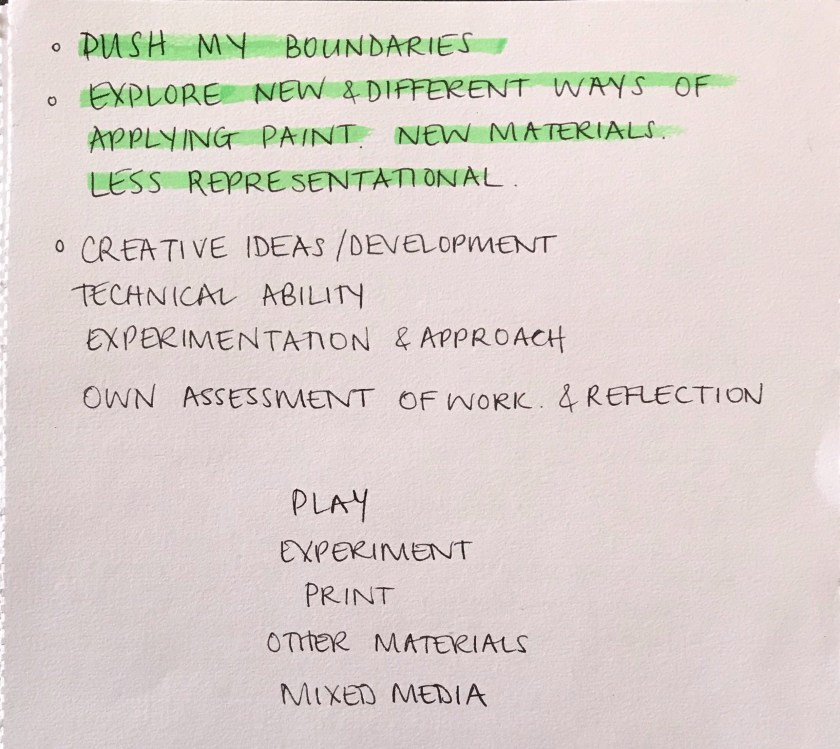 ° PUSH MY BOUNDARIES
° EXPLORE NEW & DIFFERENT WAYS OF
APPLYING PAINT. NEW MATERIALS.
LESS REPRESENTATIONAL.
° CREATIVE IDEAS / DEVELOPMENT
TECHNICAL ABILITY
EXPERIMENTATION & APPROACH
OWN ASSESSMENT OF WORK. & REFLECTION
PLAY
EXPERIMENT
PRINT
OTHER MATERIALS
MIXED MEDIA